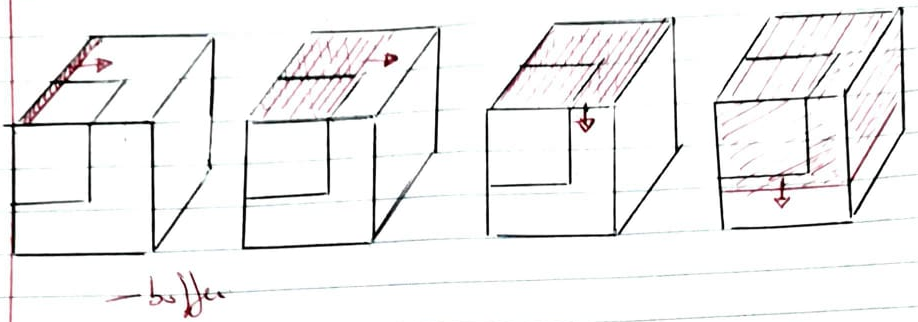 - buffer